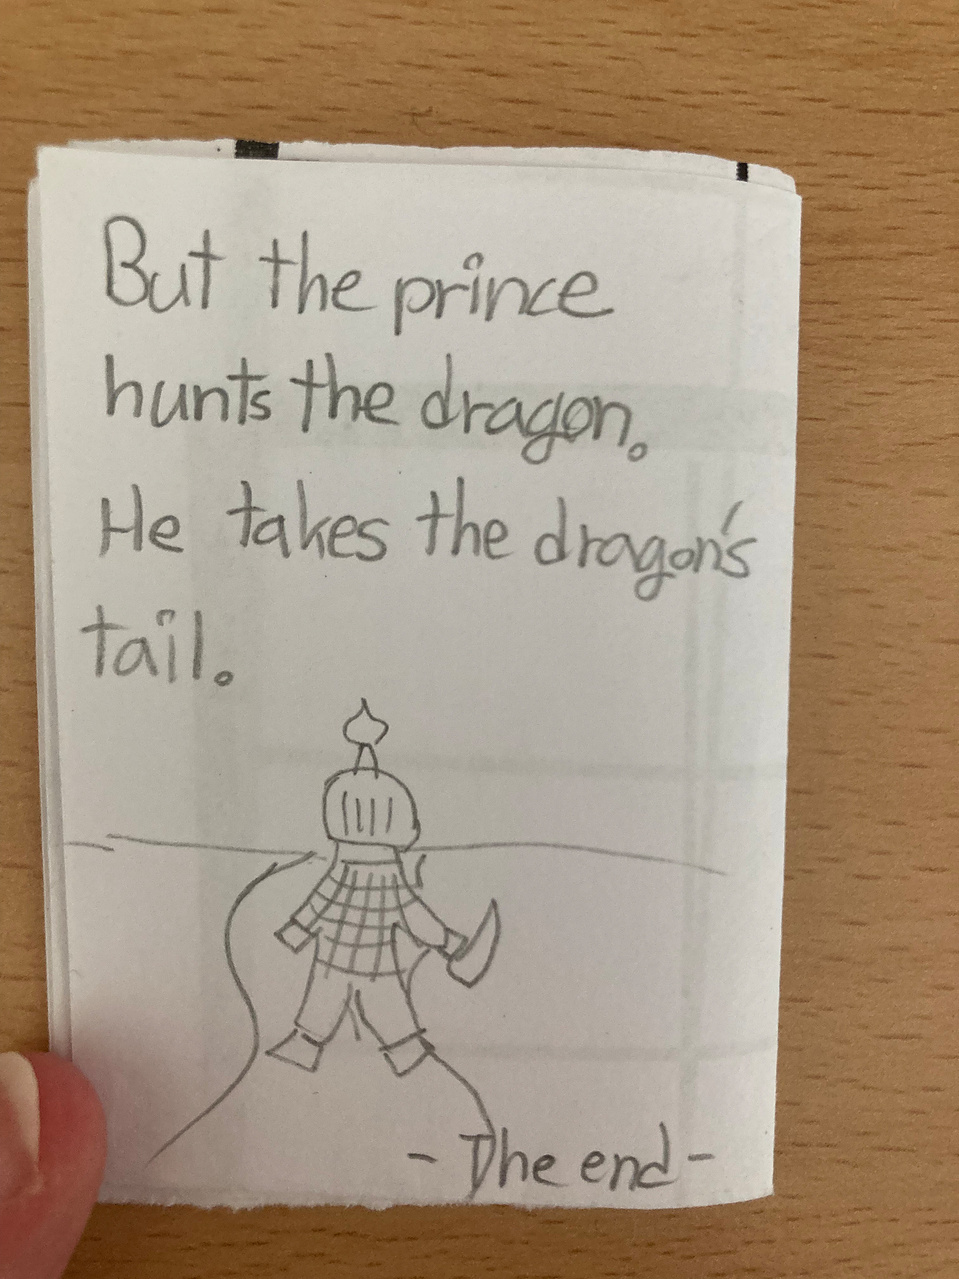 But the prince
hunts the dragon.
He takes the dragon's
tail.
- The end -